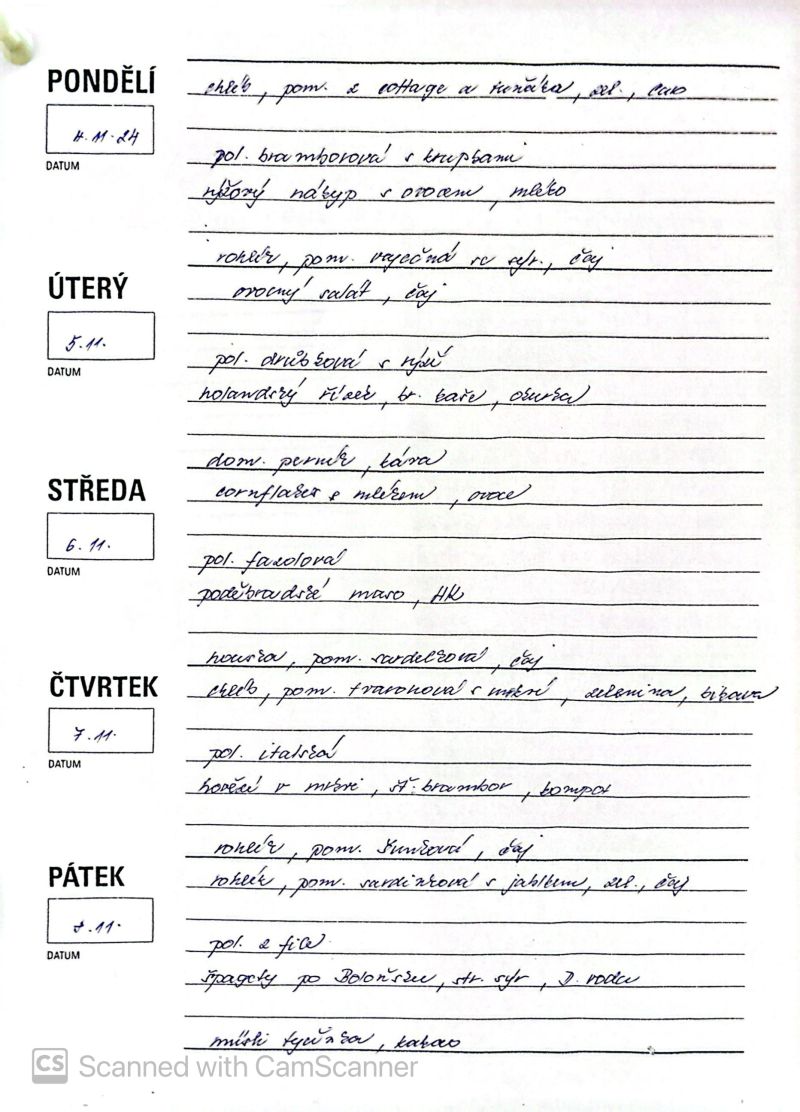 PONDĚLÍ
chléb, pom. z cottage a tuňáka, zel., čao
4.11.24
DATUM
pol. bramborová s krupkami
rýžový nákyp s ovocem, mléko
rohlík, pom. vaječná se sýr., čaj
ÚTERÝ
ovocný salát, čaj
5.11.
DATUM
pol. drůbková s rýží
holandský řízek, br. kaše, okurka
dom. perník, káva
STŘEDA
cornflakes s mlékem, ovoce
6.11.
DATUM
pol. fazolová
poděbradské maso, HK
houska, pom. sardelková, čaj
ČTVRTEK
chléb, pom. tvarohová s mrkví, zelenina, bikava
7.11.
DATUM
pol. italská
hovězí v mrkvi, šť. brambor, kompot
rohlík, pom. šunková, čaj
PÁTEK
rohlík, pom. sardinková s jablkem, zel., čaj
8.11.
DATUM
pol. z filé
špagety po Boloňsku, str. sýr, D. voda
müsli tyčinka, kakao
CS Scanned with CamScanner